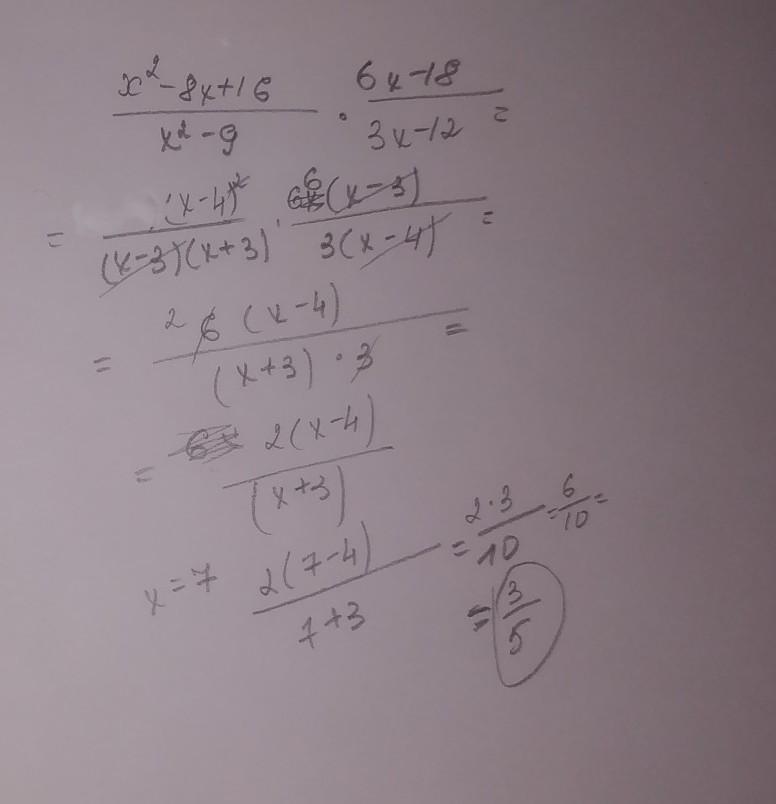 (x²-8x+16)/(x²-9) · (6x-18)/(3x-12) =
= (x-4)²/((x-3)(x+3)) · 6(x-3)/(3(x-4)) =
= 2 6(x-4)/((x+3)·3) =
= 2(x-4)/(x+3)
x=7 2(7-4)/(7+3) = 2·3/10 = 6/10 =
= 3/5